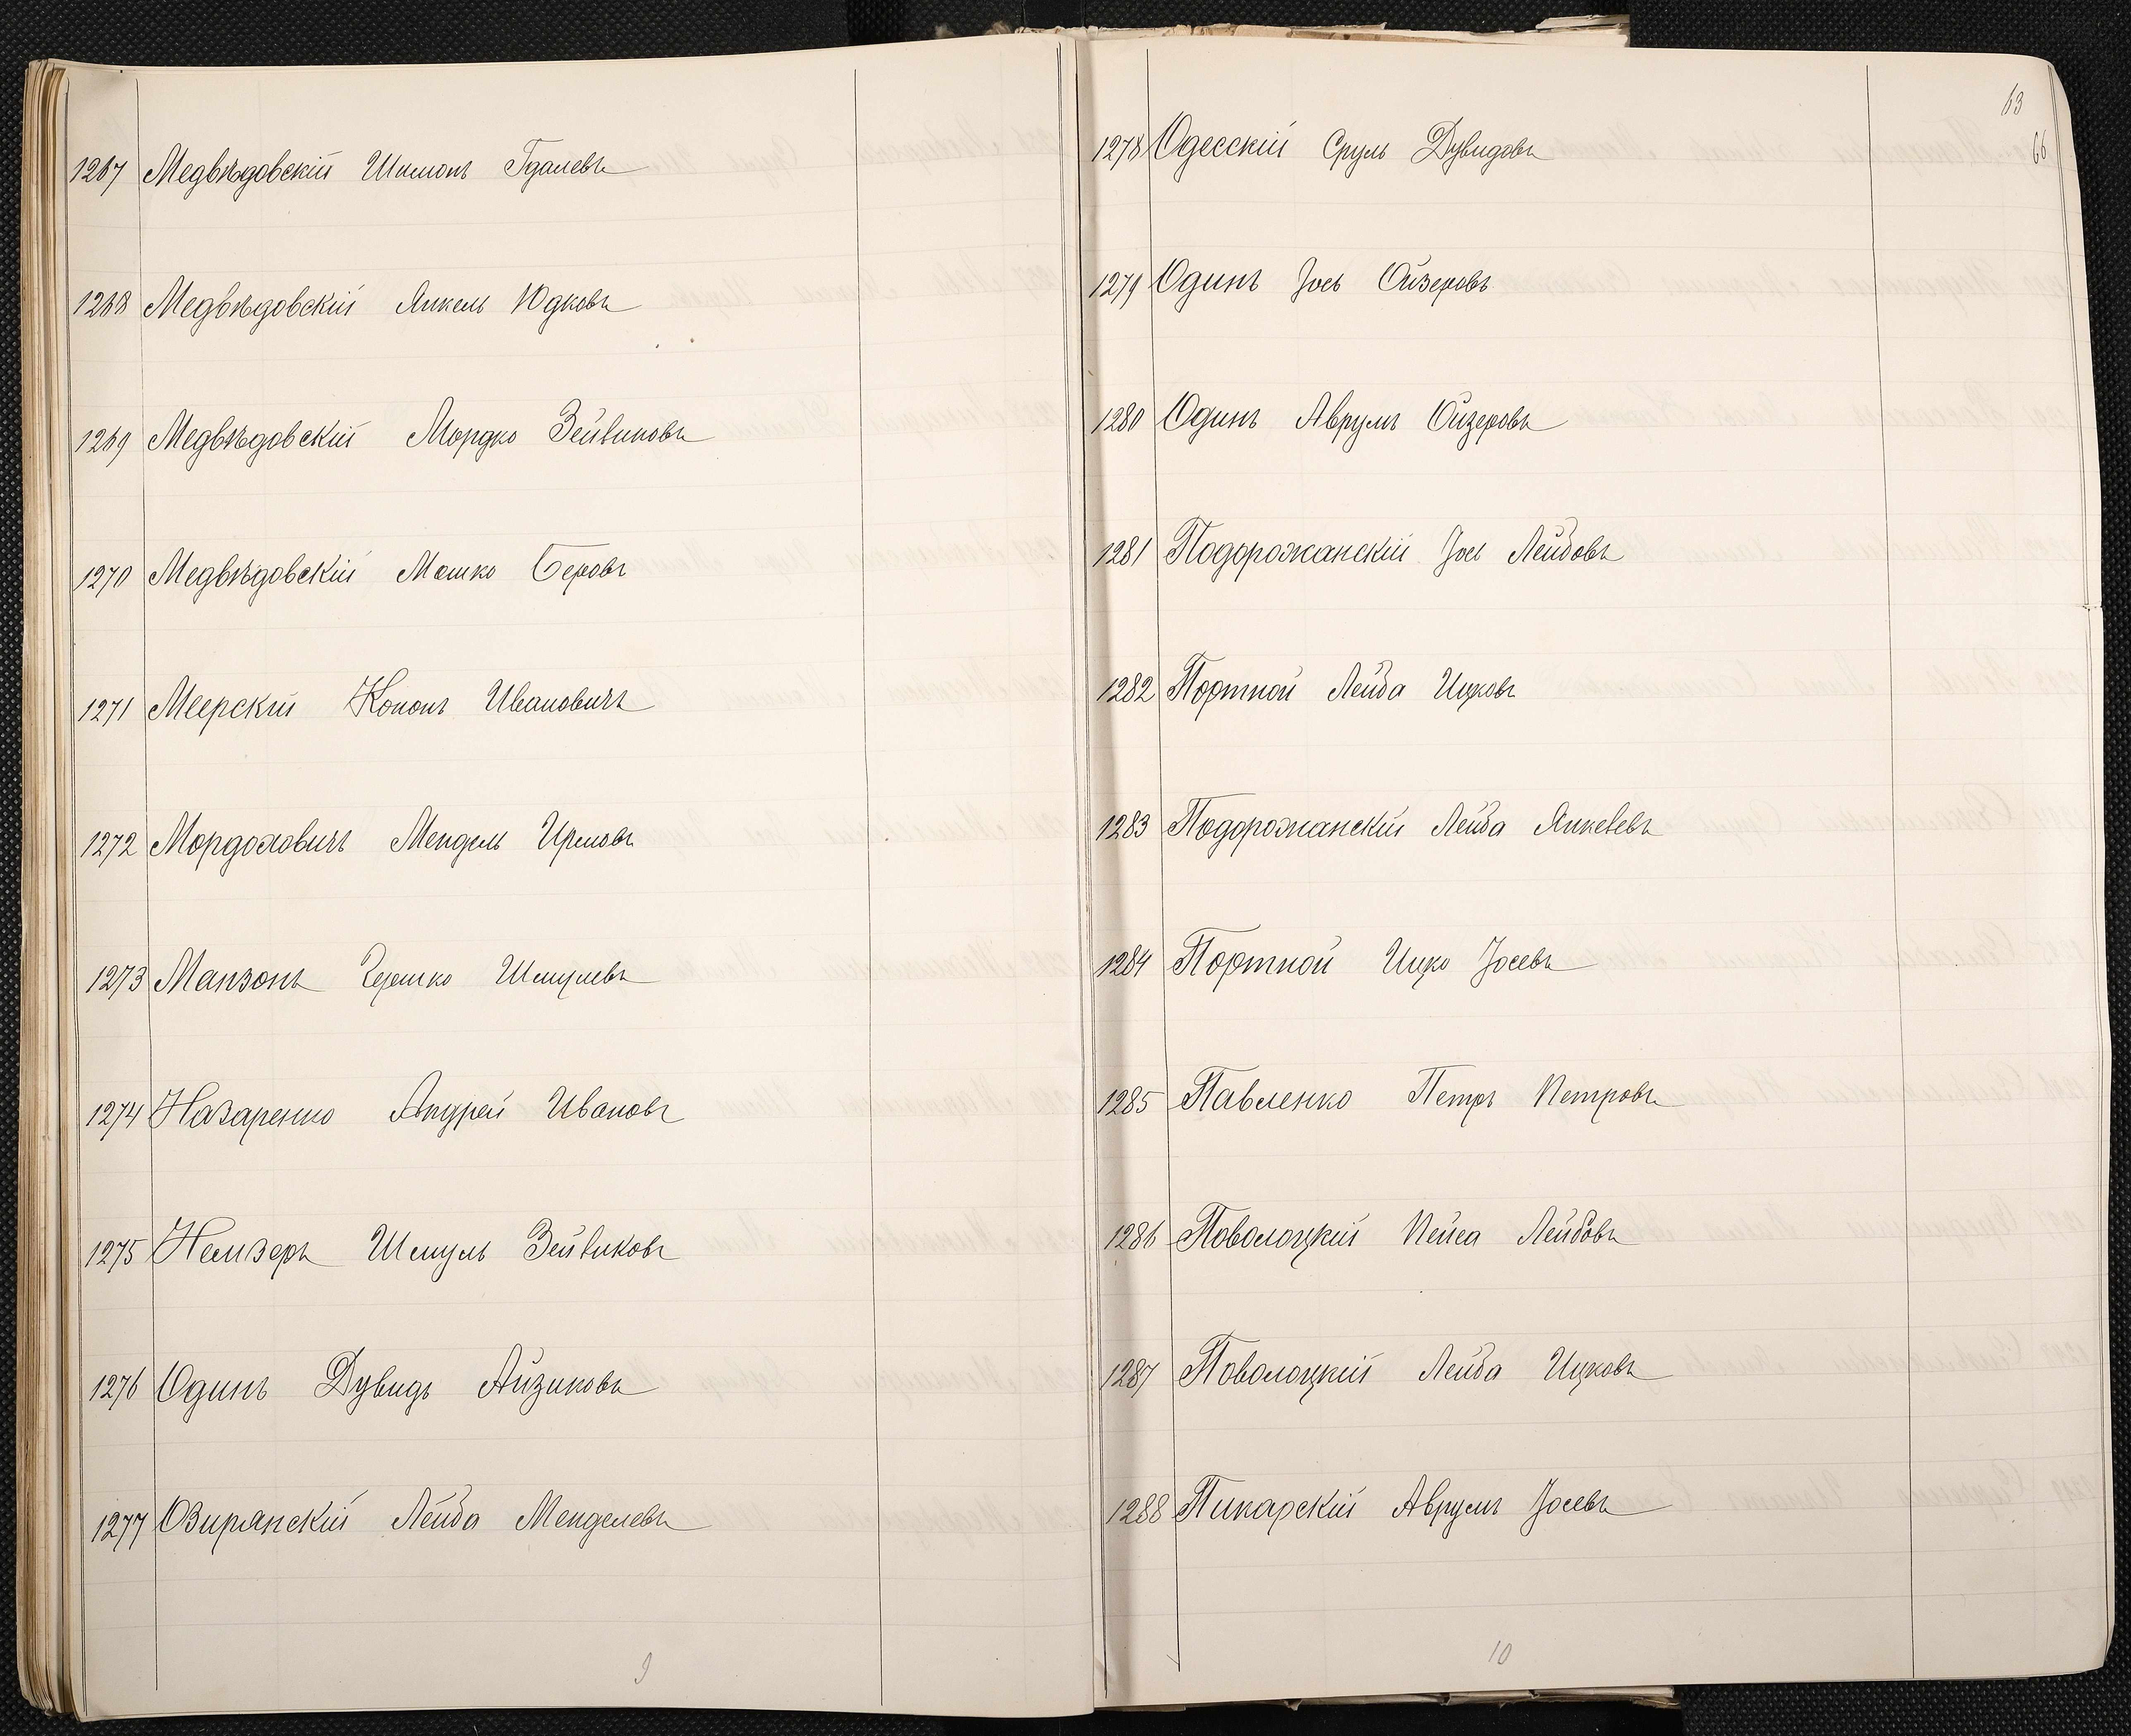 1267 Медвѣдовскій Шимонъ Гдалевъ
1268 Медвѣдовскій Янкель Юдковъ
1269 Медвѣдовскій Мордко Зейвиковъ
1270 Медвѣдовскій Мошко Беровъ
1271 Меерскій Кононъ Ивановичъ
1272 Мордоховичъ Мендель Ирмовъ
1273 Манзонъ Гершко Шмулевъ
1274 Назаренко Андрей Ивановъ
1275 Немзеръ Шмуль Зейвиковъ
1276 Одинъ Дувидъ Айзиковъ
1277 Озирянскій Лейба Менделевъ
9
63
66
1278 Одесскій Сруль Дувидовъ
1279 Одинъ Іось Ойзеровъ
1280 Одинъ Аврумъ Ойзеровъ
1281 Подорожанскій Іось Лейбовъ
1282 Портной Лейба Ицковъ
1283 Подорожанскій Лейба Янкелевъ
1284 Портной Ицко Іосевъ
1285 Павленко Петръ Петровъ
1286 Поволоцкій Пейса Лейбовъ
1287 Поволоцкій Лейба Ицковъ
1288 Пикарскій Аврумъ Іосевъ
10